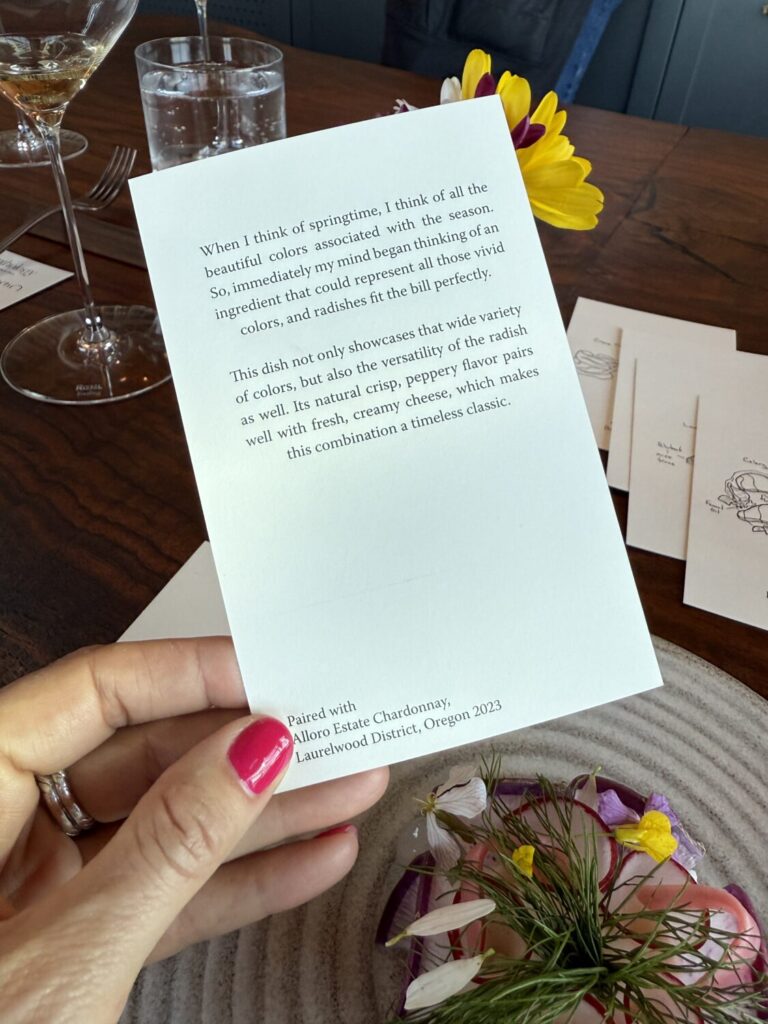 When I think of springtime, I think of all the
beautiful colors associated with the season.
So, immediately my mind began thinking of an
ingredient that could represent all those vivid
colors, and radishes fit the bill perfectly.
This dish not only showcases that wide variety
of colors, but also the versatility of the radish
as well. Its natural crisp, peppery flavor pairs
well with fresh, creamy cheese, which makes
this combination a timeless classic.
Paired with
Alloro Estate Chardonnay,
Laurelwood District, Oregon 2023